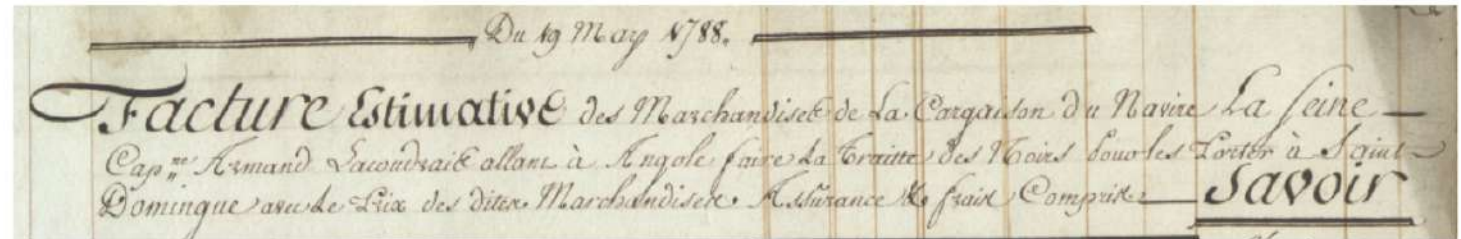 Du 19 May 1788.
Facture Estimative des Marchandises de La Cargaison du Navire La Seine
Cap.ne Armand Lacoudrais allant à Angole faire La Traitte des Noirs pour les Porter à Saint
Domingue avec Le Prix des dites Marchandises. Assurance & frais Compris. Savoir